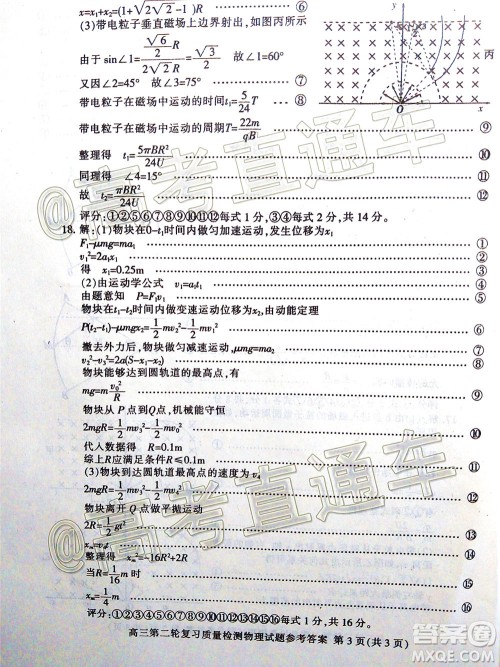 x=x₁+x₂=(1+√2√2√2-1)R ⑥
(3)带电粒子垂直磁场上边界射出，如图丙所示
由于 sin∠1=(√6/2 R)/(2√2/2 R)=√3/2 故∠1=60°
丙
又因∠2=45° 故∠3=75° ⑦
带电粒子在磁场中运动的时间t₁=5/24 T ⑧
O x
带电粒子在磁场中运动的周期T=22m/qB ⑨
整理得 t₁=5πBR²/24U ⑩
同理得 ∠4=15° ⑪
故 t₂=πBR²/24U ⑫
评分：①②⑤⑥⑦⑧⑨⑩⑪⑫每式 1 分，③④每式 2 分，共 14 分。
18.解：(1)物块在0-t₁时间内做匀加速运动，发生位移为x₁
F₁-μmg=ma₁ ①
v₁²=2a₁x₁ ②
得 x₁=0.25m ③
(2)由运动学公式 v₁=a₁t₁ ④
由题意知 P=F₁v₁ ⑤
物块在t₁-t₂时间内做变速运动位移为x₂，由动能定理
P(t₂-t₁)-μmgx₂=1/2 mv₂²-1/2 mv₁² ⑥
撤去外力后，物块做匀减速运动， ⑦
v₂²-v₃²=2a(S-x₁-x₂) ⑧
物块能够达到圆轨道的最高点，有
mg=m v₀²/R ⑨
物块从 P 点到Q点，机械能守恒
2mgR=1/2 mv₃²-1/2 mv₀² ⑩
代人数据得 R=0.1m
综上R应满足条件R≤0.1m ⑪
(3)物块到达圆轨道最高点的速度为v₄
2mgR=1/2 mv₃²-1/2 mv₄² ⑫
物块离开 Q点做平抛运动
2R=1/2 gt² ⑬
xₘ=v₄t ⑭
整理得 xₘ²=-16R²+2R
当R=1/16 m 时 ⑮
xₘ=1/4 m ⑯
评分：①②③④⑤⑥⑦⑧⑨⑩⑪⑫⑬⑭⑮⑯每式 1 分，共 16 分。
高三第二轮复习质量检测物理试题参考答案 第 3 页(共 3 页)
@高考直通车
@高考直通车
答案圈